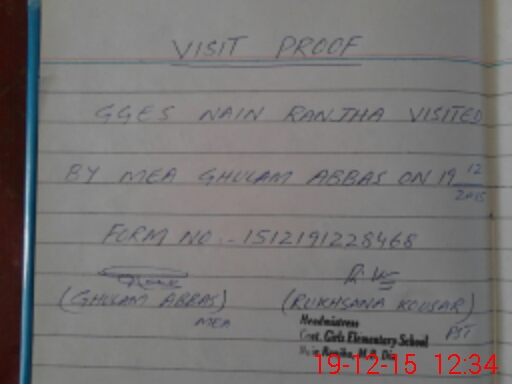 VISIT PROOF
GGES NAIN RANJHA VISITED
BY MEA GHULAM ABBAS ON 19 12
2015
FORM NO:- 1512191228468
(GHULAM ABBAS) (RUKHSANA KOUSAR)
MEA PST
Headmistress
Govt. Girls Elementary School
19-12-15 12:34